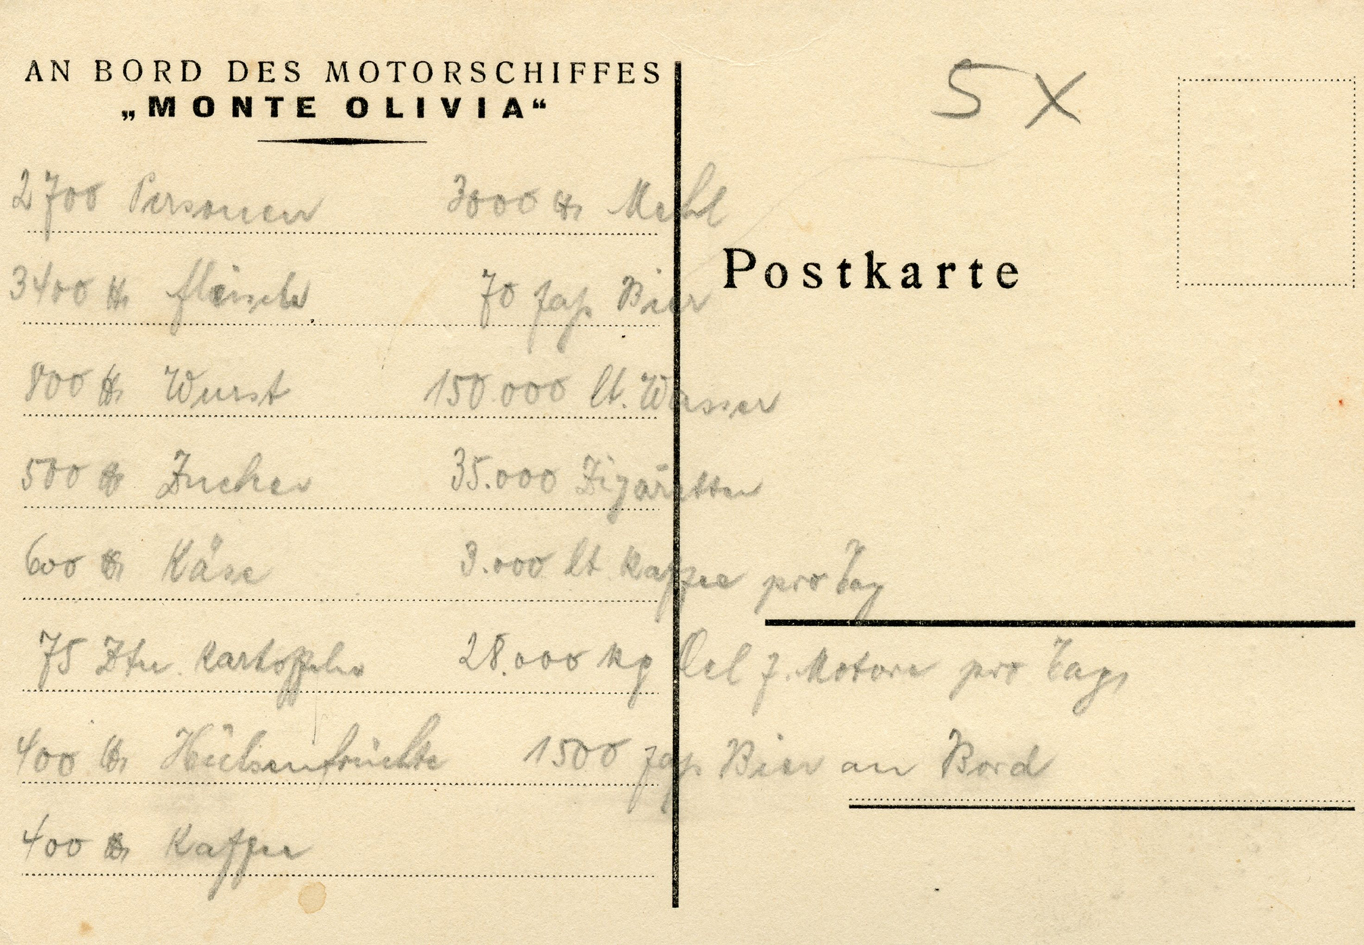 AN BORD DES MOTORSCHIFFES
„MONTE OLIVIA“
5 X
2700 Personen 3000 ℔ Mehl
Postkarte
3400 ℔ Fleisch 70 Faß Bier
800 ℔ Wurst 150.000 lt. Wasser
500 ℔ Zucker 35.000 Zigaretten
600 ℔ Käse 3.000 lt Kaffee pro Tag
75 Ztn. Kartoffeln 28.000 kg Oel f. Motore pro Tag
400 ℔ Hülsenfrüchte 1500 Faß Bier an Bord
400 ℔ Kaffee